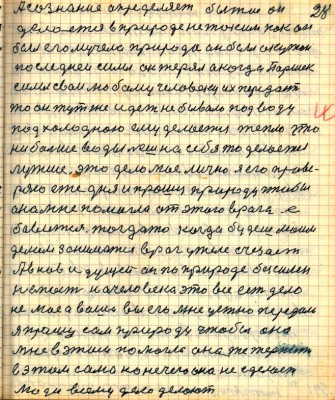 А сознание определяет бытие он 28
делается в природе не таким как он
был его мучела природа он был окутан
последней силы он терял а когда Паршек
силы свои любому человеку их передаст
то он тут же идет небывало под воду
под холодною ему делается тепло что
ни больше воды лш на себя то делается
лучше, это дело мое лично я его прове-
ряю еже дня и прошу природу чтобы
она мне помогла от этого врага
бавится, тогда то когда будеш моим
делом заниматся враг у тебе счезает
А в нов и душей он по природе бисилен
на человека это все ест дело
не мое а ваше вы его мне устно передали
я прошу сам природу чтобы она
мне в этом помогла она же терпит
в этом сама но нечего она не сделает
Люди всему дело делают